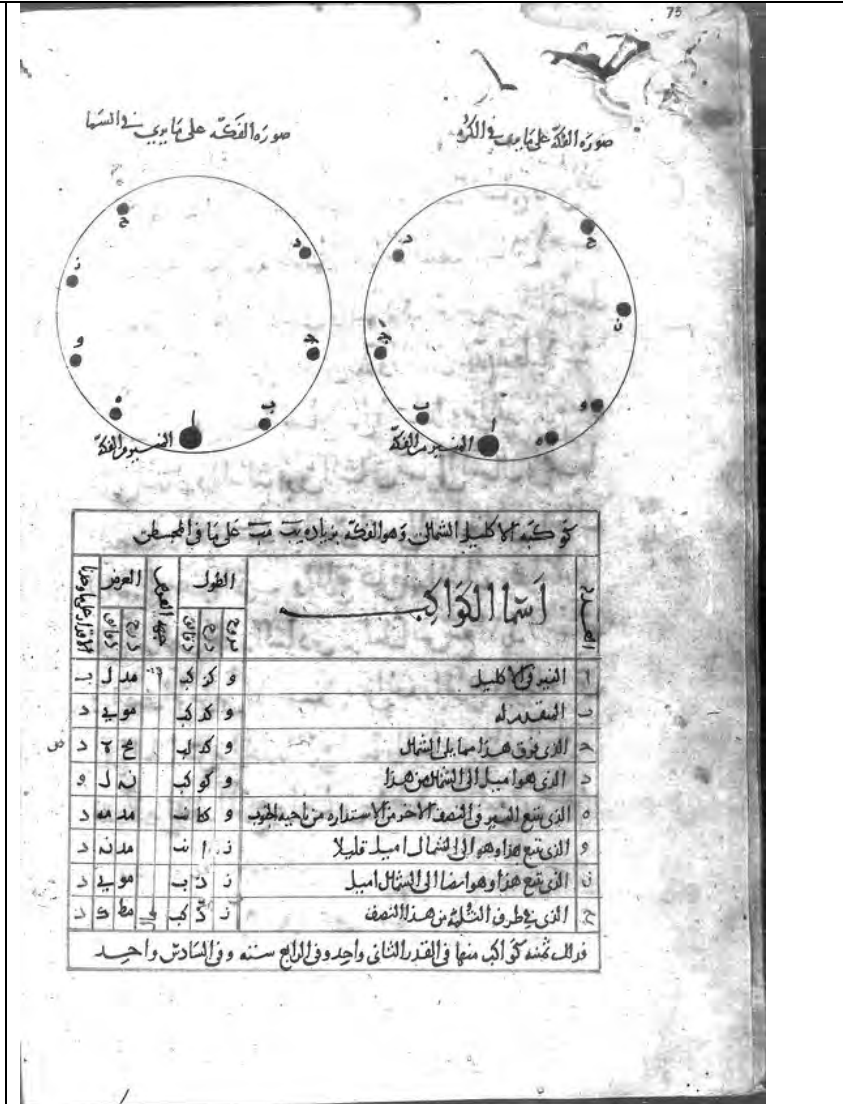 75
صورة الفكّة على ما يرى في الكره
صوره الفكّه على ما يرى في السما
ح د ن ج و ب ه ا
المنير من الفكّة
ح د ز ج و ب ه ا
المنير من الفكّة
كوكبه الاكليل الشمالى وهو الفكّه بزياده يب مب على ما فى المجسطى
العدد اسما الكواكب الطول جهة العرض العرض الاقدار على ما وجدنا
بروج درج دقائق درج دقائق
ا المنير فى الاكليل و كز كب مد ل ب
ب المتقدم له و كد كب مو ى د
ج الذى فوق هذا مما يلى الشمال و كد لب مح د
د الذى هو اميل الى الشمال من هذا و كو كب ن ل و
ه الذى يتبع المنير فى النصف الاخر من الاستداره من ناحيه الجنوب و كط نب مد مه د
و الذى يتبع هذا وهو الى الشمال اميل قليلا ز ا نب مد نه د
ز الذى يتبع هذا وهو ايضا الى الشمال اميل ز د ب مو ى د
ح الذى فى طرف الثلمة من هذا النصف ز د كب شمال مط ك د
فذلك ثمنيه كواكب منها فى القدر الثانى واحد وفى الرابع سته وفى السادس واحد